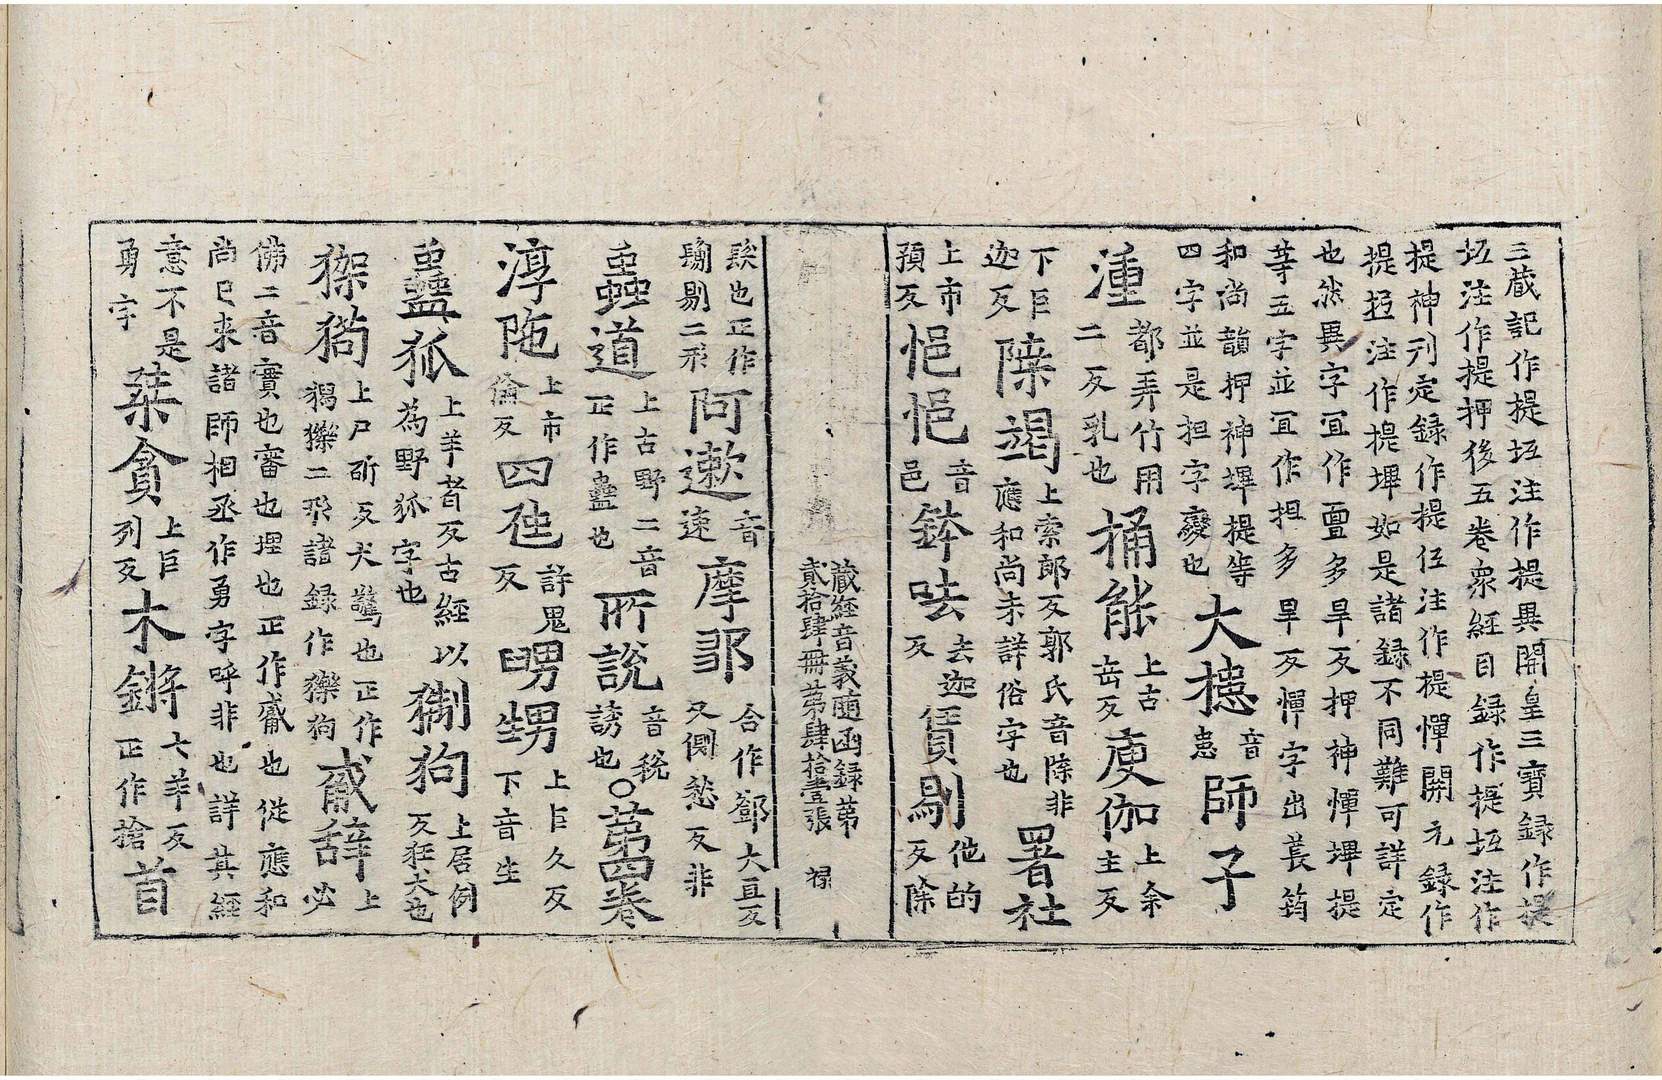 三藏記作提坘注作提異開皇三寶録作提
坘注作提押後五卷衆經目録作提坘注作
提神刋定録作提伍注作提憚開元録作
提䄈注作提墠如是諸録不同難可詳定
也然異字冝作亶多旱反押神憚墠提
等五字並冝作担多旱反憚字出萇筠
和尚韻押神墠提等
四字並是担字變也
大櫘
音
恚
師子
湩
都弄竹用
二反乳也
桶能
上古
岳反
庾伽
上余
主反
下巨
迦反
𨻶竭
上索郎反郭氏音除非
應和尚未詳俗字也
署社
上市
預反
悒悒
音
邑
鉢呿
去迦
反
賃剔
他的
反除
藏經音義隨函録第
貳拾肆冊第肆拾壹張
禄
髮也正作
鬄剔二形
阿遬
音
速
摩𨚗
合作鄧大亘反
又側愁反非
蟲道
上古野二音
正作蠱也
所說
音稅
誘也
○第四卷
淳陁
上市
倫反
四𠈇
許鬼
反
甥甥
上巨久反
下音生
蠱狐
上羊者反古經以
為野狐字也
猘狗
上居例
反狂犬也
㹱猲
上戸斫反犬驚也正作
獦㺟二形諸録作㺟狗
𢧵辞
上
必
佛二音實也審也理也正作𢧵也從應和
尚已来諸師相丞作勇字呼非也詳其經
意不是
勇字
桀貪
上巨
列反
木鏘
七羊反
正作搶
首